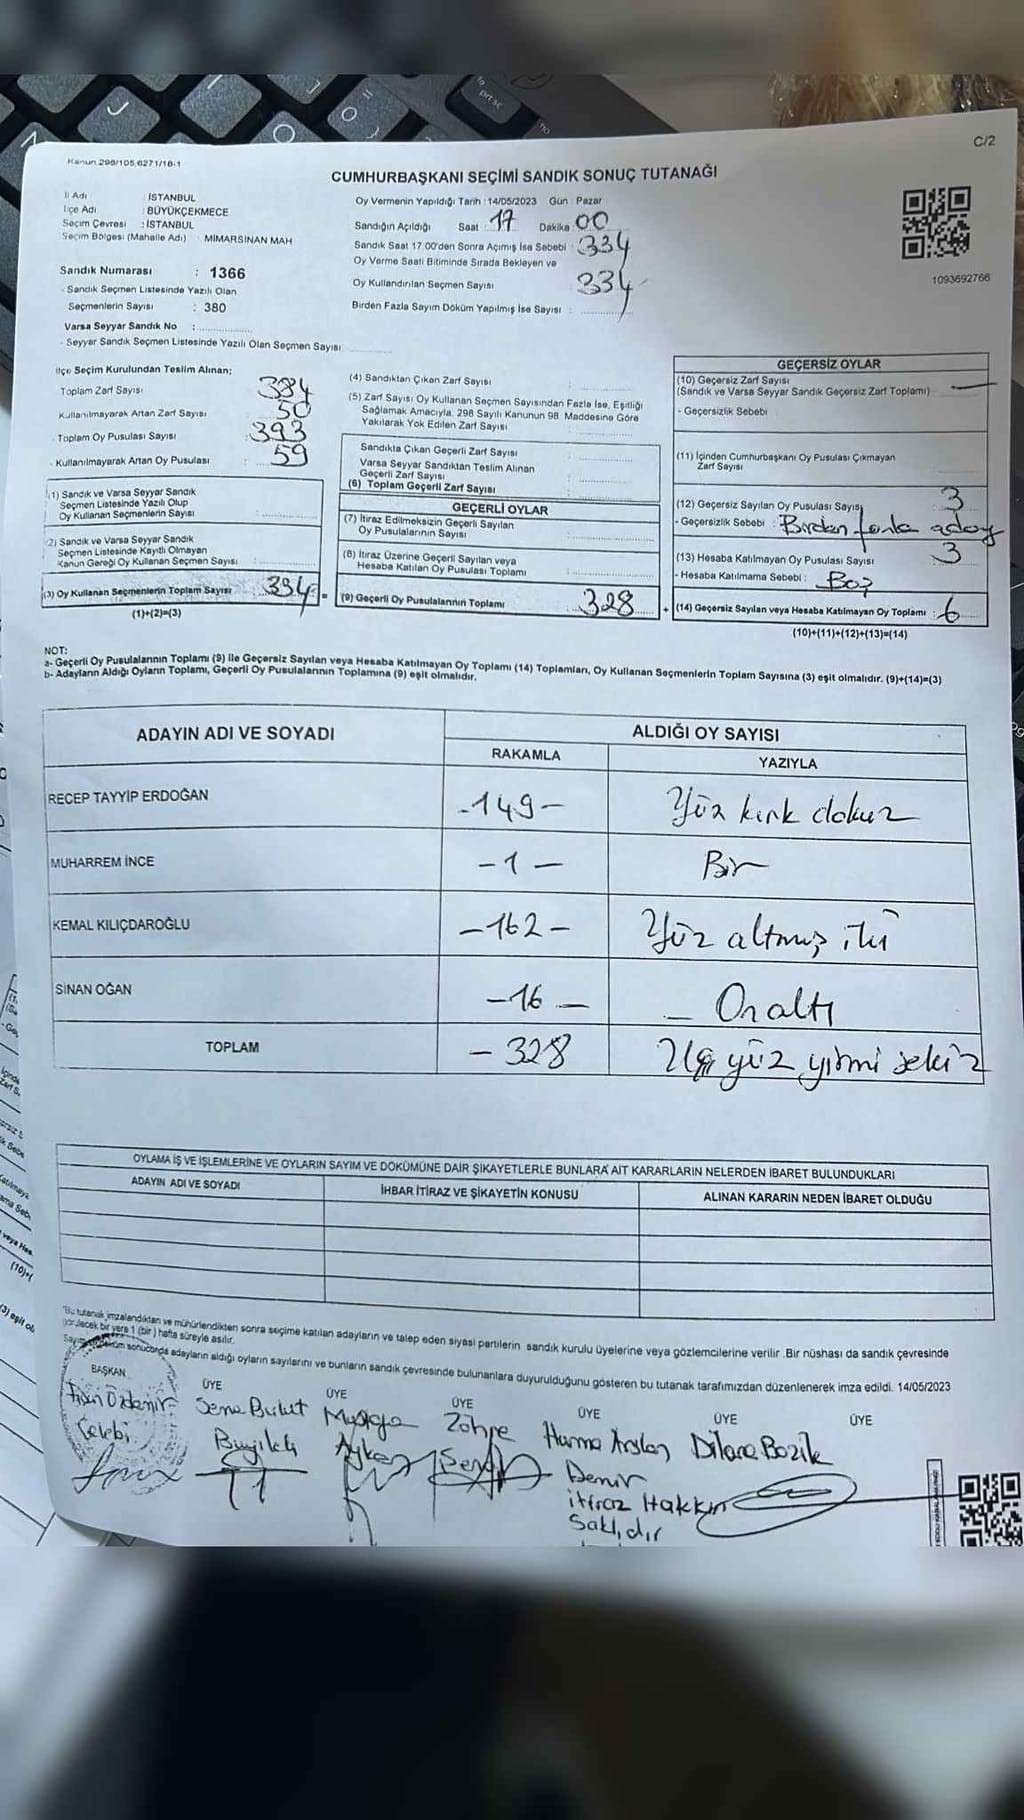 C/2
Kanun.298/105,6271/18-1
CUMHURBAŞKANI SEÇİMİ SANDIK SONUÇ TUTANAĞI
İl Adı : İSTANBUL
İlçe Adı : BÜYÜKÇEKMECE
Seçim Çevresi : İSTANBUL
Seçim Bölgesi (Mahalle Adı) : MİMARSİNAN MAH
Sandık Numarası : 1366
- Sandık Seçmen Listesinde Yazılı Olan
Seçmenlerin Sayısı : 380
Varsa Seyyar Sandık No :
- Seyyar Sandık Seçmen Listesinde Yazılı Olan Seçmen Sayısı
Oy Vermenin Yapıldığı Tarih : 14/05/2023 Gün : Pazar
Sandığın Açıldığı Saat : 17 Dakika : 00
Sandık Saat 17.00'den Sonra Açımış İse Sebebi : 334
Oy Verme Saati Bitiminde Sırada Bekleyen ve
Oy Kullandırılan Seçmen Sayısı 334
Birden Fazla Sayım Döküm Yapılmış İse Sayısı :
1093692766
İlçe Seçim Kurulundan Teslim Alınan;
Toplam Zarf Sayısı 384
Kullanılmayarak Artan Zarf Sayısı : 50
Toplam Oy Pusulası Sayısı : 393
Kullanılmayarak Artan Oy Pusulası : 59
(1) Sandık ve Varsa Seyyar Sandık
Seçmen Listesinde Yazılı Olup
Oy Kullanan Seçmenlerin Sayısı :
(2) Sandık ve Varsa Seyyar Sandık
Seçmen Listesinde Kayıtlı Olmayan
Kanun Gereği Oy Kullanan Seçmen Sayısı :
(3) Oy Kullanan Seçmenlerin Toplam Sayısı 334 =
(1)+(2)=(3)
(4) Sandıktan Çıkan Zarf Sayısı
(5) Zarf Sayısı Oy Kullanan Seçmen Sayısından Fazla İse, Eşitliği
Sağlamak Amacıyla, 298 Sayılı Kanunun 98. Maddesine Göre
Yakılarak Yok Edilen Zarf Sayısı
Sandıkta Çıkan Geçerli Zarf Sayısı
Varsa Seyyar Sandıktan Teslim Alınan
Geçerli Zarf Sayısı
(6) Toplam Geçerli Zarf Sayısı
GEÇERLİ OYLAR
(7) İtiraz Edilmeksizin Geçerli Sayılan
Oy Pusulalarının Sayısı
(8) İtiraz Üzerine Geçerli Sayılan veya
Hesaba Katılan Oy Pusulaları Toplamı
(9) Geçerli Oy Pusulalarının Toplamı 328 +
GEÇERSİZ OYLAR
(10) Geçersiz Zarf Sayısı
(Sandık ve Varsa Seyyar Sandık Geçersiz Zarf Toplamı) —
- Geçersizlik Sebebi :
(11) İçinden Cumhurbaşkanı Oy Pusulası Çıkmayan
Zarf Sayısı
(12) Geçersiz Sayılan Oy Pusulası Sayısı 3
- Geçersizlik Sebebi : Birden fazla aday
(13) Hesaba Katılmayan Oy Pusulası Sayısı 3
- Hesaba Katılmama Sebebi : Boş
(14) Geçersiz Sayılan veya Hesaba Katılmayan Oy Toplamı : 6
(10)+(11)+(12)+(13)=(14)
NOT:
a- Geçerli Oy Pusulalarının Toplamı (9) ile Geçersiz Sayılan veya Hesaba Katılmayan Oy Toplamı (14) Toplamları, Oy Kullanan Seçmenlerin Toplam Sayısına (3) eşit olmalıdır. (9)+(14)=(3)
b- Adayların Aldığı Oyların Toplamı, Geçerli Oy Pusulalarının Toplamına (9) eşit olmalıdır.
ADAYIN ADI VE SOYADI
ALDIĞI OY SAYISI
RAKAMLA YAZIYLA
RECEP TAYYİP ERDOĞAN -149- Yüz kırk dokuz
MUHARREM İNCE -1- Bir
KEMAL KILIÇDAROĞLU -162- Yüz altmış iki
SİNAN OĞAN -16- - On altı
TOPLAM - 328 Üç yüz yirmi sekiz
OYLAMA İŞ VE İŞLEMLERİNE VE OYLARIN SAYIM VE DÖKÜMÜNE DAİR ŞİKAYETLERLE BUNLARA AİT KARARLARIN NELERDEN İBARET BULUNDUKLARI
ADAYIN ADI VE SOYADI İHBAR İTİRAZ VE ŞİKAYETİN KONUSU ALINAN KARARIN NEDEN İBARET OLDUĞU
*Bu tutanak imzalandıktan ve mühürlendikten sonra seçime katılan adayların ve talep eden siyasi partilerin sandık kurulu üyelerine veya gözlemcilerine verilir. Bir nüshası da sandık çevresinde
görülecek bir yere 1 (bir) hafta süreyle asılır.
sonucunda adayların aldığı oyların sayılarını ve bunların sandık çevresinde bulunanlara duyurulduğunu gösteren bu tutanak tarafımızdan düzenlenerek imza edildi. 14/05/2023
BAŞKAN ÜYE ÜYE ÜYE ÜYE ÜYE ÜYE
Özdemir Çelebi
Sena Bulut
Zöhre
Arslan Demir
itiraz Hakkım
Saklıdır
Dilara Bozik